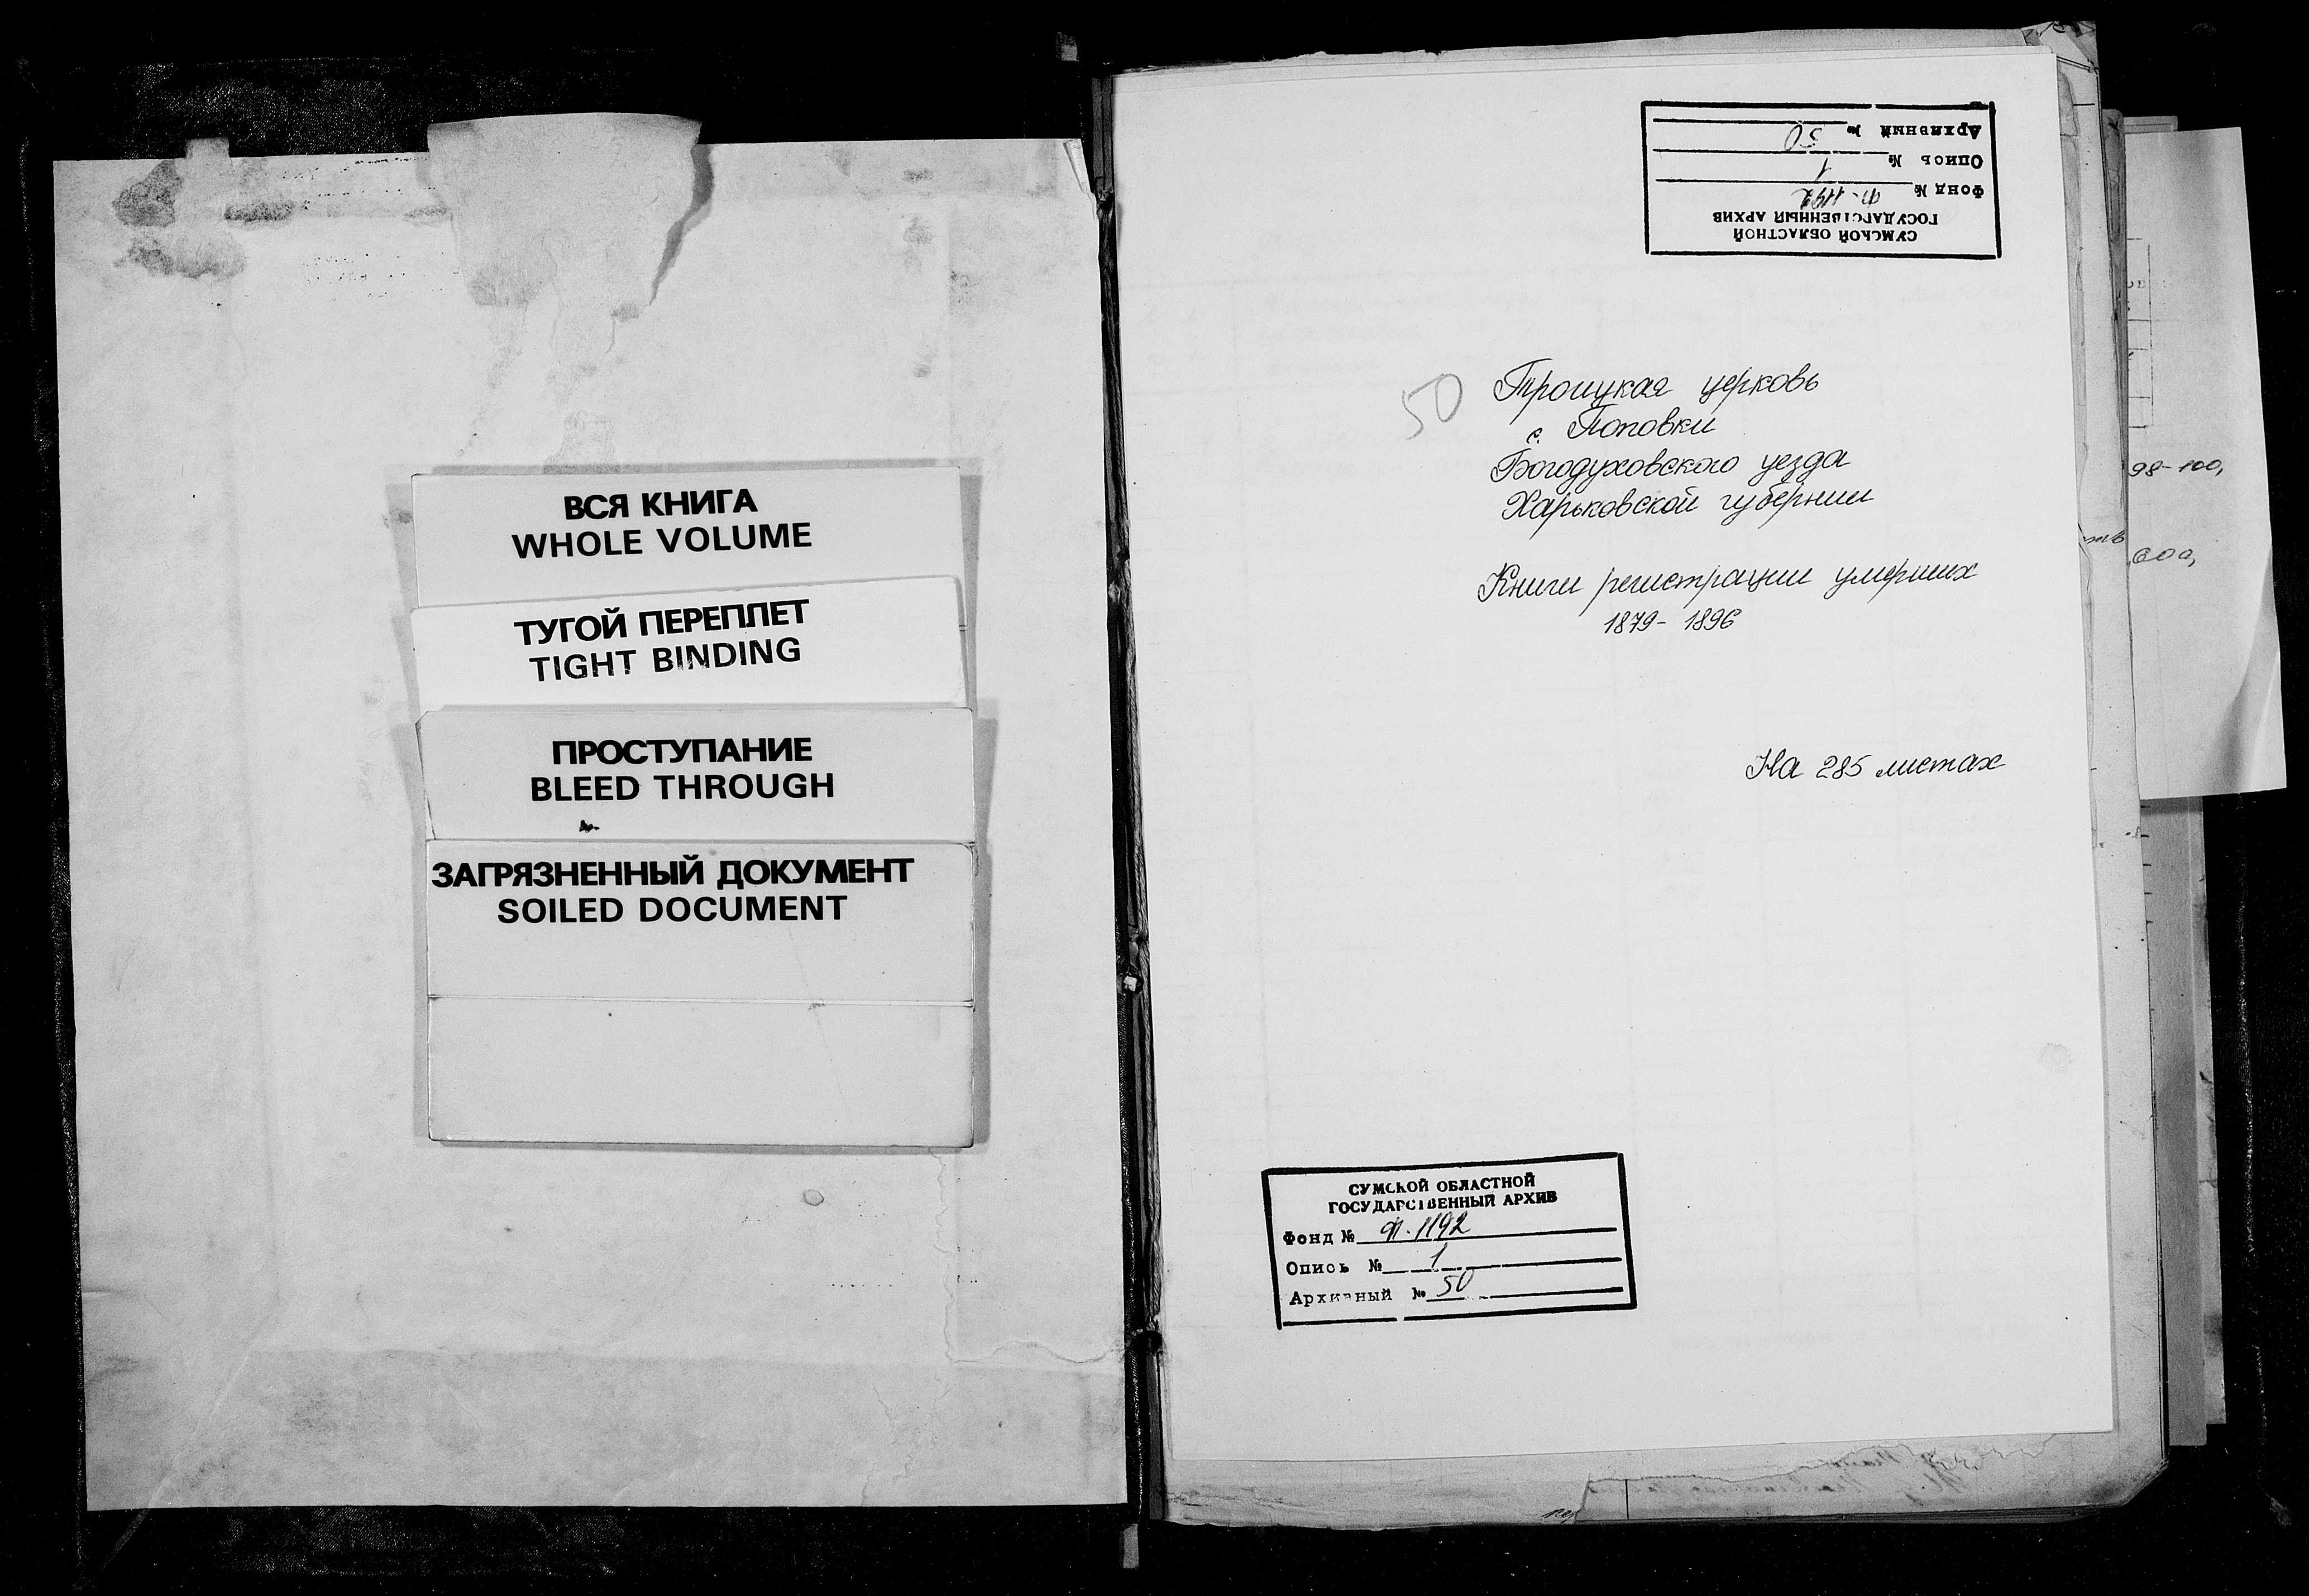 ВСЯ КНИГА
WHOLE VOLUME
ТУГОЙ ПЕРЕПЛЕТ
TIGHT BINDING
ПРОСТУПАНИЕ
BLEED THROUGH
ЗАГРЯЗНЕННЫЙ ДОКУМЕНТ
SOILED DOCUMENT
СУМСКОЙ ОБЛАСТНОЙ
ГОСУДАРСТВЕННЫЙ АРХИВ
Фонд № Ф-1192
Опись № 1
Архивный № 50
50
Троицкая церковь
с. Поповки
Богодуховского уезда
Харьковской губернии
Книги регистрации умерших
1879- 1896
На 285 листах
СУМСКОЙ ОБЛАСТНОЙ
ГОСУДАРСТВЕННЫЙ АРХИВ
Фонд № Ф.1192
Опись № 1
Архивный № 50
98-100,